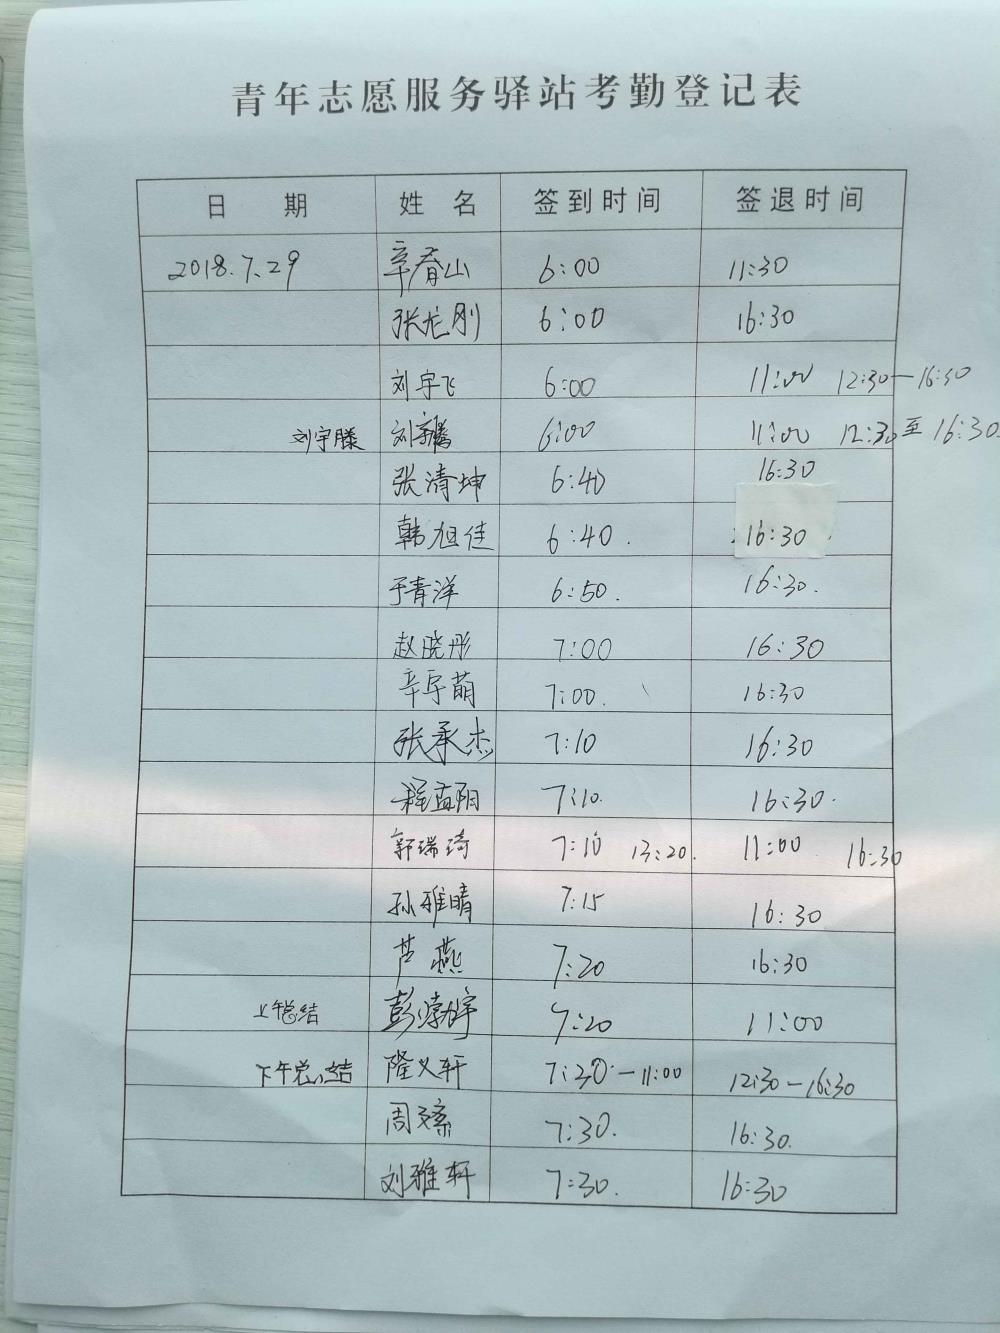 青年志愿服务驿站考勤登记表
日 期 姓 名 签到时间 签退时间
2018.7.29 辛春山 6:00 11:30
张龙刚 6:00 16:30
刘宇飞 6:00 11:00 12:30—16:30
刘宇滕 刘宇滕 6:00 11:00 12:30至16:30
张清坤 6:40 16:30
韩旭佳 6:40. 16:30
于青洋 6:50. 16:30.
赵晓彤 7:00 16:30
辛宇萌 7:00. 16:30
张承杰 7:10 16:30
程孟阳 7:10. 16:30.
郭瑞琦 7:10 13:20. 11:00 16:30
孙雅晴 7:15 16:30
芦燕 7:20 16:30
上午总结 彭渤宇 7:20 11:00
下午总结 隆义轩 7:30—11:00 12:30—16:30
周 7:30. 16:30.
刘雅轩 7:30. 16:30